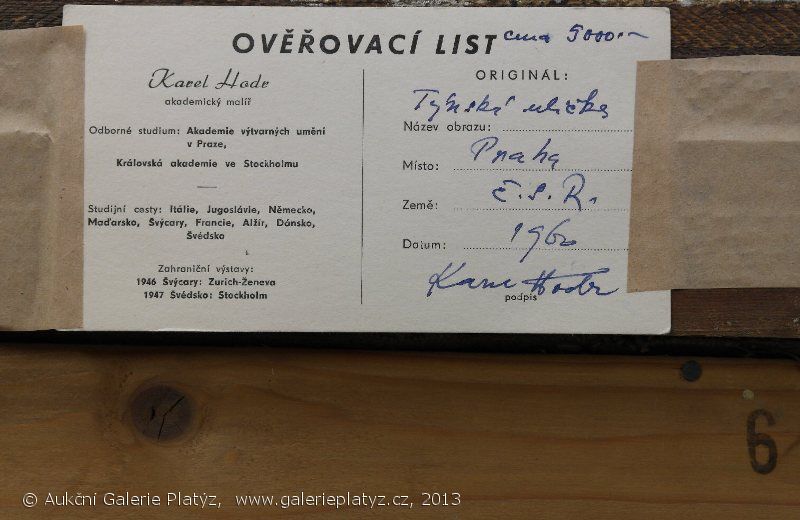 OVĚŘOVACÍ LIST cena 5000.-
Karel Hodr
akademický malíř
Odborné studium: Akademie výtvarných umění
v Praze,
Královská akademie ve Stockholmu
Studijní cesty: Itálie, Jugoslávie, Německo,
Maďarsko, Švýcary, Francie, Alžír, Dánsko,
Švédsko
Zahraniční výstavy:
1946 Švýcary: Zurich-Ženeva
1947 Švédsko: Stockholm
ORIGINÁL:
Název obrazu: Týnská ulička
Místo: Praha
Země: Č.S.R.
Datum: 1960
Karel Hodr
podpis
6
© Aukční Galerie Platýz, www.galerieplatyz.cz, 2013